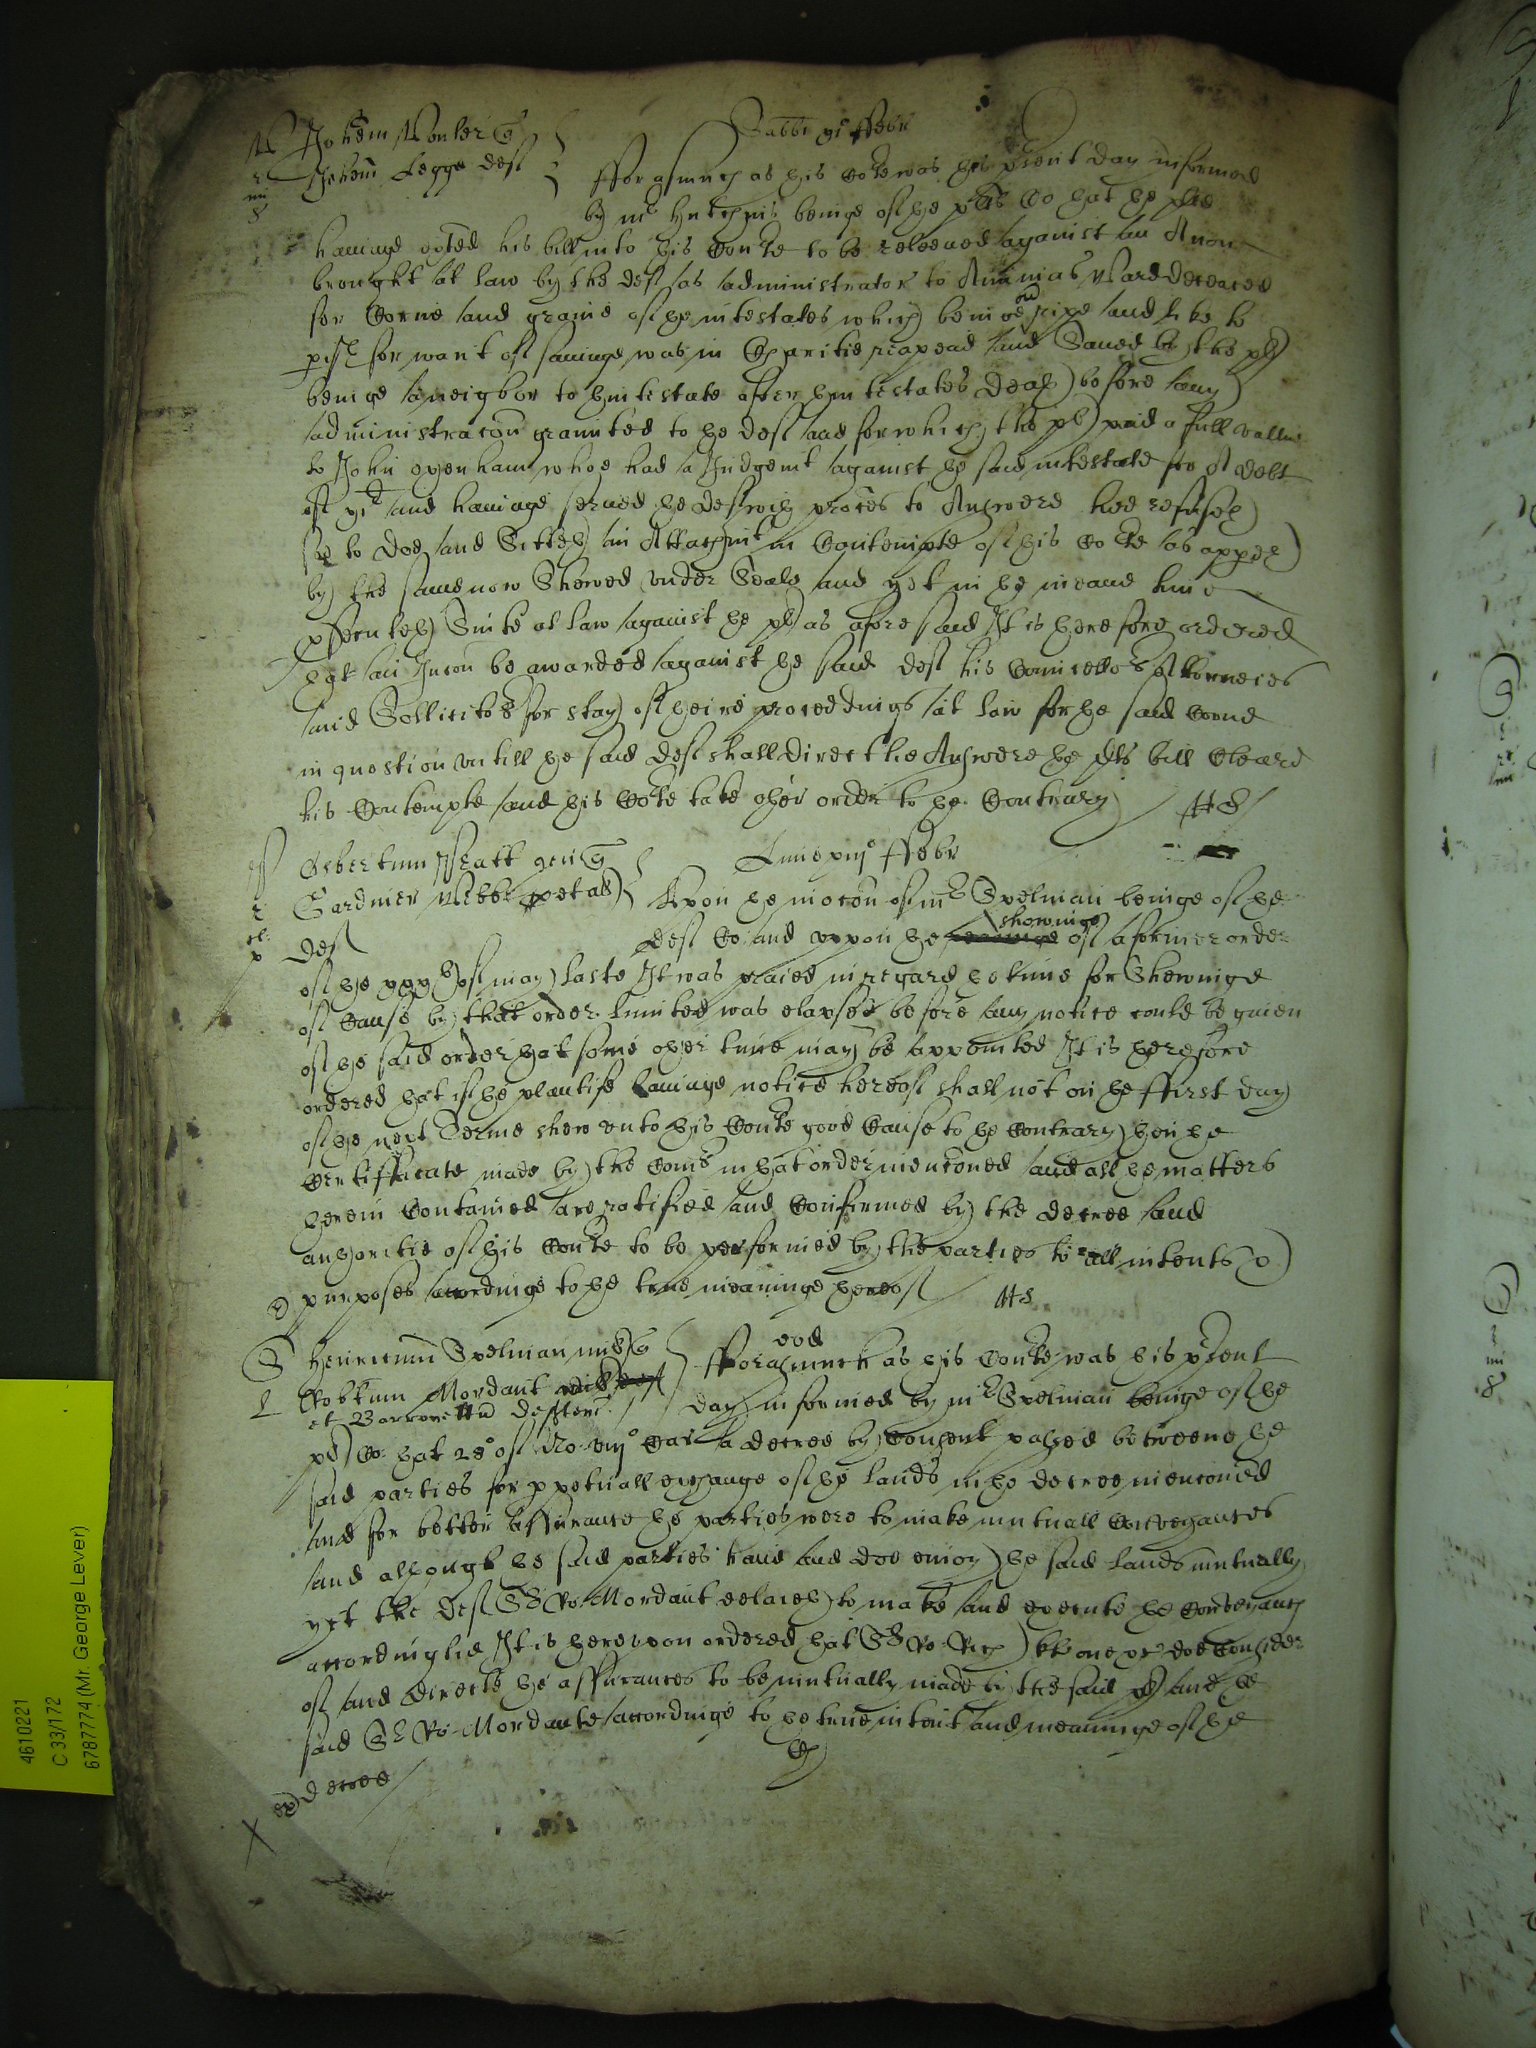 Sabbi xi° ffebr
Johem Mouler q
Johem Legge def
fforasmuch as this Co:rte was this p:rsent day informed
by m:r Hutchins beinge of the pl:ts Co that the pl:te
havinge exhted his bill into this Courte to be releeved against an Accon
brought at law by the def as administrator to Ananias Ward deceaced
for Corne and graine of the intestates which beinge ripe and like to
perish for want of savinge was in Charitie reaped and Saved by the pl
beinge a neighbor to thintestate after thintestates Death before any
administracon graunted to the def and for which the pl paid a full vallue
to John oxenham whoe had a Judgem:t against the said intestate for A debt
of xi:l and havinge served the def with proces to Answere hee refuseth
so to doe and Sitteth in Attachm:t in Contempte of this Co:rte as appeth
by the same now Shewed under Seale and yet in the meane time
p:rsecuteth Suite at law against the pl as aforesaid It is therefore ordered
that an Iniuccon be awarded against the said def his Councello:rs Attorneies
and Sollicito:rs for stay of theire proceedings at law for the said Corne
in question untill the said def shall directlie Answere the pl:ts bill Cleare
his Contempte and this Co:rte take other order to the Contrary H S
Lune xiij° ffebr
Gardiner Webbe et al
def
Upon the mocon of m:r Spelman beinge of the
def Co and uppon the shewinge of a former order
of the xxx:th of may laste It was praied in regard the time for Shewinge
of Cause by that order limited was elapsed before any notice could be given
of the said order that some other time may be appointed It is therefore
ordered that if the plantife havinge notice hereof shall not on the ffirst day
of the next Terme shew unto this Courte good Cause to the Contrary then the
Certifficate made by the Com:rs in that order mencioned and all the matters
therein Contained are ratified and Confirmed by the decree and
authoritie of this Courte to be performed by the parties to all intents &
purposes accordinge to the true meaninge thereof H S
Henricum Spelman mil q
Robtum Mordaut
et Barronettu deftem
eod
fforasmuch as this Courte was this p:rsent
day informed by m:r Spelman beinge of the
pl Co: that 28° of No: viij° Car a decree by Consent passed betweene the
said parties for ppetuall exchange of the lands in the decree mencioned
and for better assurance the parties were to make mutuall Conveyances
and although the said parties have and doe enioy the said lands mutually
yet the def S:r Ro: Mordaut delaieth to make and execute the Conveyance
accordinglie It is thereupon ordered that S:r Ro: Rich doe Consider
of and directe the assurances to be mutually made by the said pl and the
said S:r Ro: Mordante accordinge to the true intent and meaninge of the
decree
4610221
C 33/172
6787774 (Mr. George Lever)